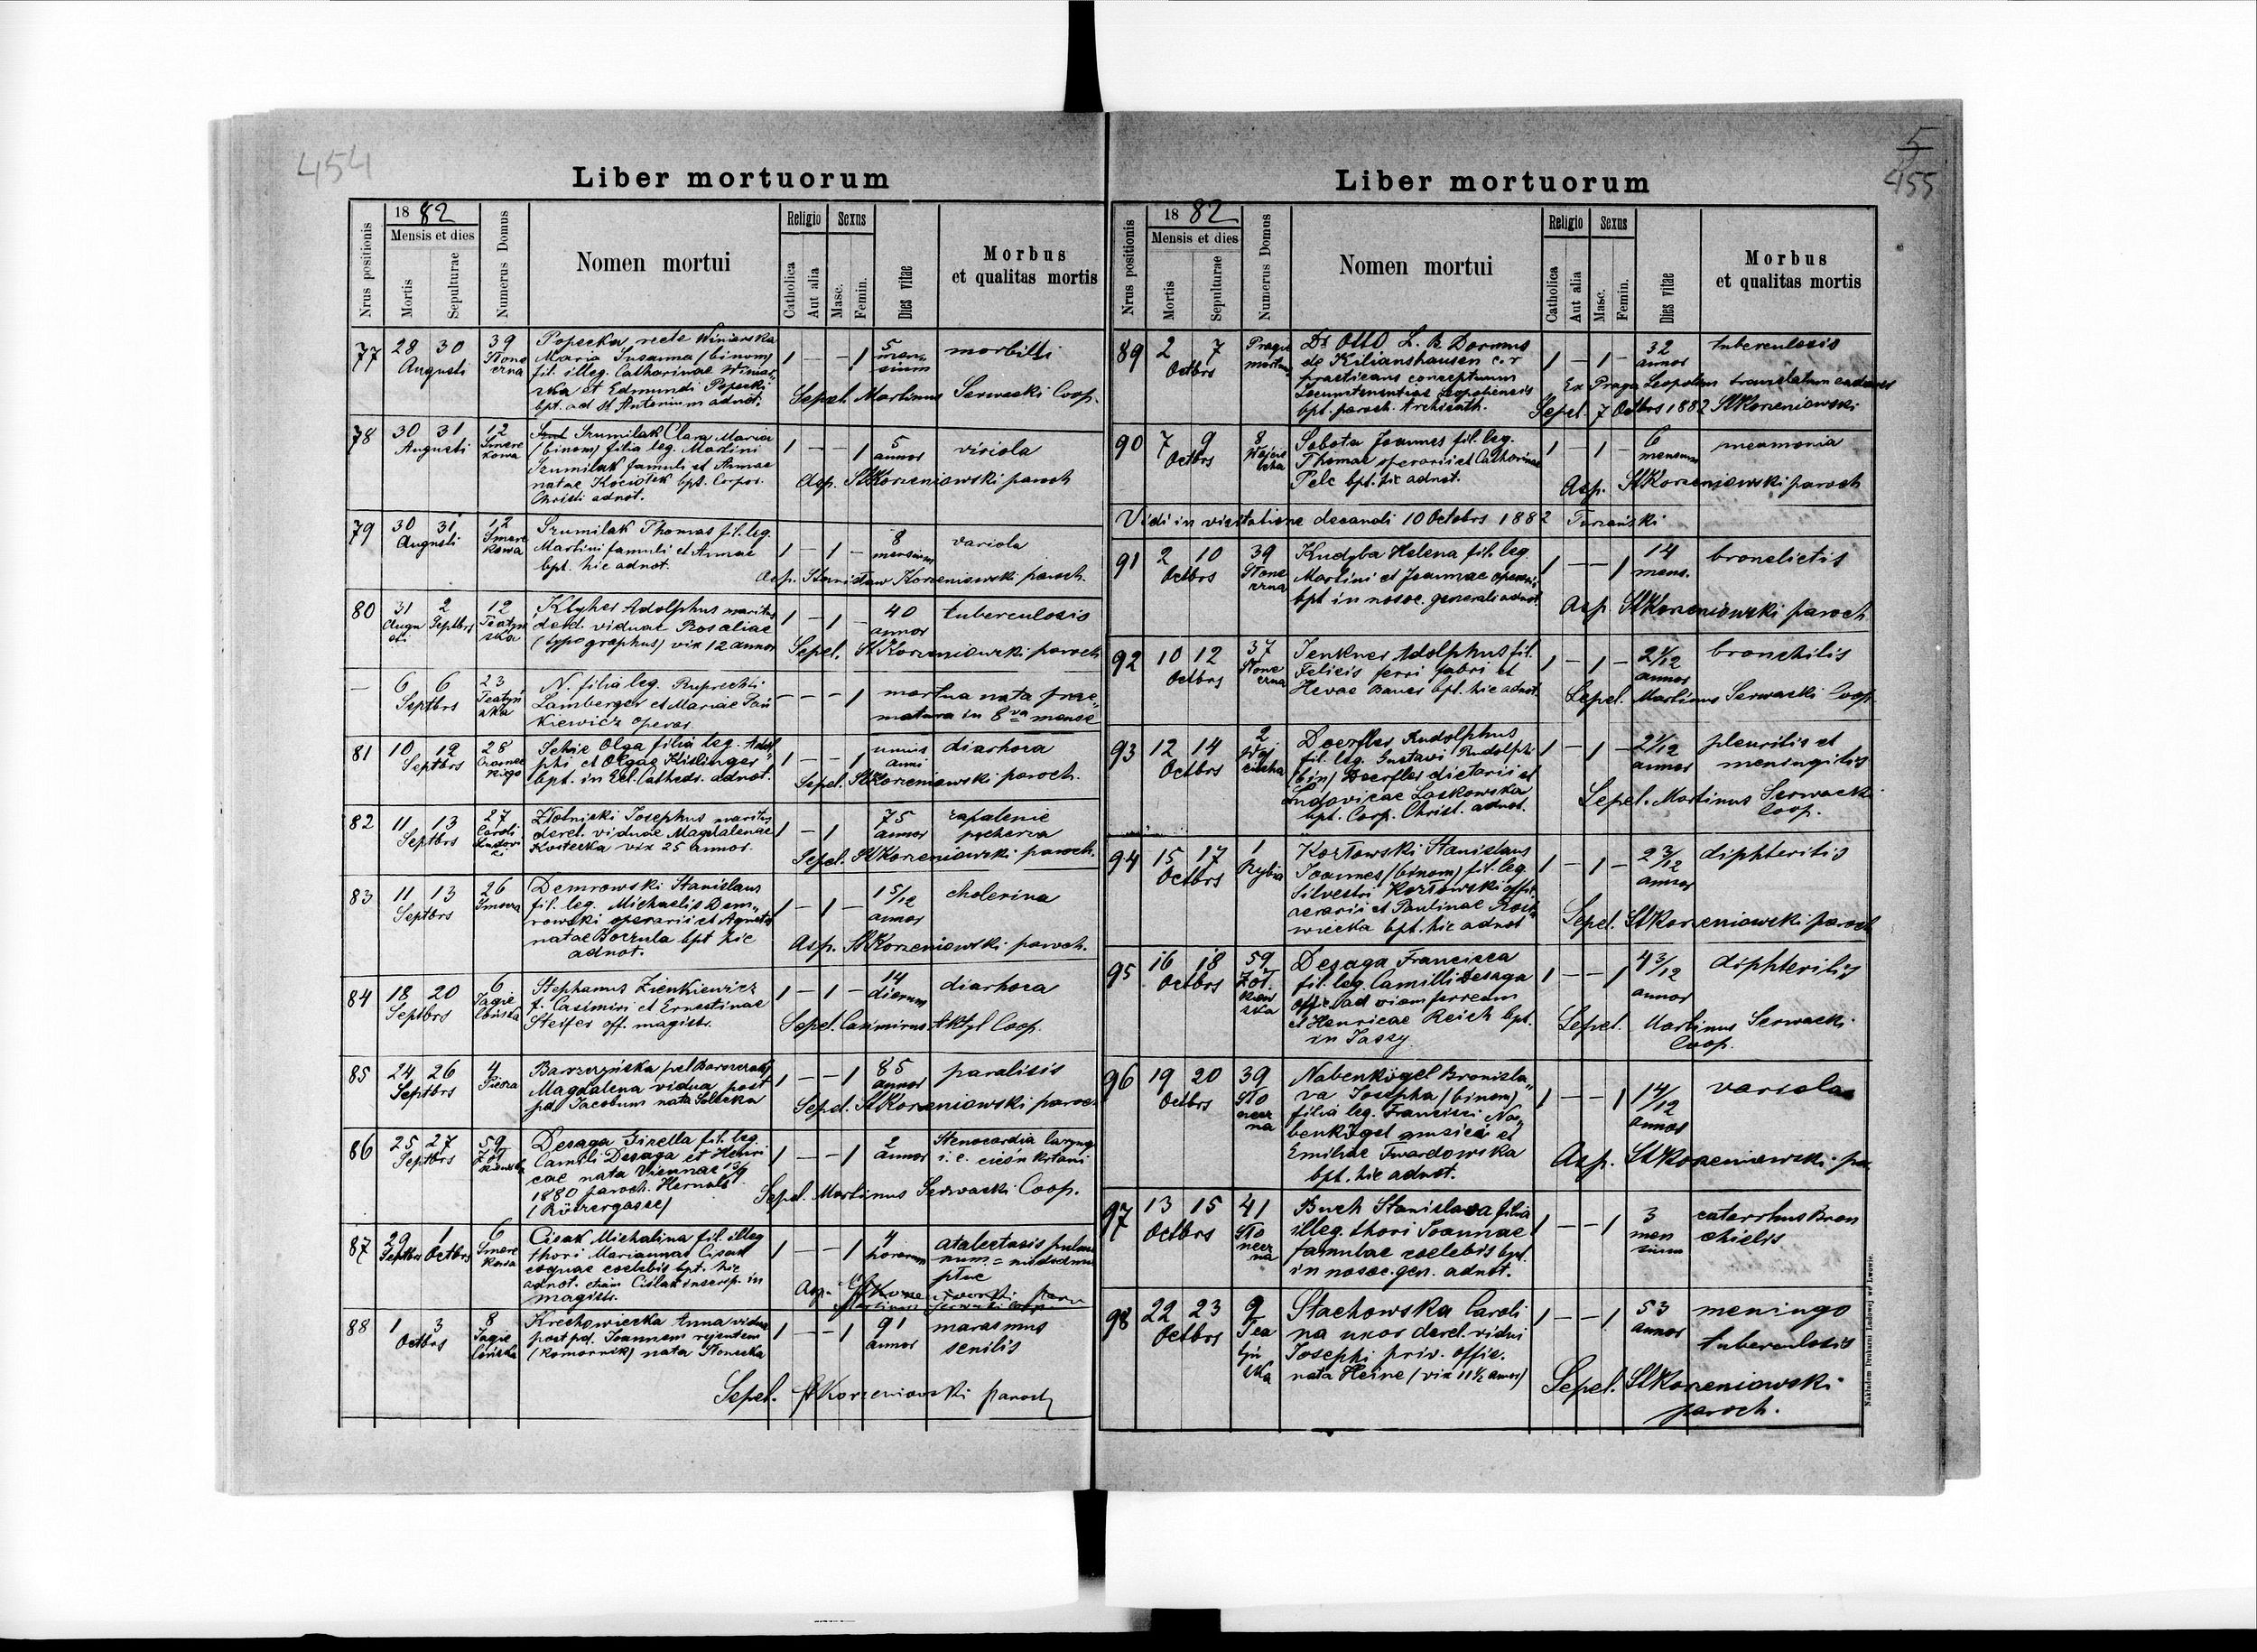 454
Liber mortuorum
Nrus positionis
1882
Mensis et dies
Mortis
Sepulturae
Numerus Domus
Nomen mortui
Religio
Catholica
Aut alia
Sexus
Masc.
Femin.
Dies vitae
Morbus
et qualitas mortis
77 28 30 Augusti 39 Słone czna
Popecka, recte Winiarska
Maria Susanna (binom)
fil. illeg. Catharinae Winiar-
ska et Edmundi Popecki
bpt. ad St Antonium adnot.
1 — — 1 5 mensium morbilli
Sepel. Martinus Serwacki Coop.
78 30 31 Augusti 12 Smere kowa
Szumilak Clara Maria
(binom) filia leg. Martini
Szumilak famuli et Annae
natae Kociołek bpt. Corpor.
Christi adnot.
1 — — 1 5 annor viriola
Asp. StKorzeniowski paroch
79 30 31 Augusti 12 Smere kowa
Szumilak Thomas fil. leg.
Martini famuli et Annae
bpt. hic adnot.
1 — 1 — 8 mensium variola
Asp. Stanisław Korzeniowski paroch.
80 31 Augu sti 2 Septbrs 12 Teatyń ska
Klyher Adolphus maritus
derel. viduae Rosaliae
(typographus) vix 12 annor
1 — 1 — 40 annor tuberculosis
Sepel. StKorzeniowski paroch
— 6 6 Septbrs 23 Teatyń ska
N. filia leg. Ruprechti
Lamberger et Mariae Pań
kiewicz operar.
— — — 1 mortua nata prae„
matura in 8va mense
81 10 12 Septbrs 28 Czarnec kiego
Schie Olga filia leg. Adol
phi et Olgae Kislinger
bpt. in Ecl. Cathedr. adnot.
1 — — 1 unius anni diarhoea
Sepel. StKorzeniowski paroch.
82 11 13 Septbrs 27 Caroli Ludovi ci
Złotnicki Josephus maritus
derel. viduae Magdalenae
Kostecka vix 25 annor.
1 — 1 75 annor zapalenie
pęcherza
Sepel. StKorzeniowski paroch.
83 11 13 Septbrs 26 Zmorza
Demrowski Stanislaus
fil. leg. Michaelis Dem„
rowski operarii et Agnetis
natae Boczula bpt hic
adnot.
1 — 1 — 1 5/12 annor cholerina
Asp. StKorzeniowski paroch.
84 18 20 Septbrs 6 Jagie lońska
Stephanus Zienkiewicz
f. Casimiri et Ernestinae
Steifer off. magistr.
1 — 1 — 14 dierum diarhoea
Sepel. Casimirus Aktyl Coop.
85 24 26 Septbrs 4 Piesza
Magdalena vidua post
pd. Jacobum nata Solecka
1 — — 1 85 annor paralisis
Sepel. StKorzeniowski paroc
86 25 27 Septbrs 59 Żół kiewska
Desaga Gizella fil. leg.
Camilli Desaga et Henri
cae nata Viennae
1880 paroch. Hernals
(Rötzergasse)
1 — — 1 2 annor Stenocardia laryng
i. e. cieśń krtani
Sepel. Martinus Serwacki Coop.
87 29 Septbrs 1 Octbrs 6 Smere kowa
Cisak Michalina fil. illeg
thori Mariannae Cisak
coquae coelebis bpt. hic
adnot. etiam Cislak inscrip. in
magistr.
1 — — 1 4 horarum atalectasis pulmo
num = niedodma
płuc
Asp. Martinus Serwacki Coop
88 1 3 Octbrs 8 Jagie lońska
Krechowiecka Anna vidua
post pd. Joannem rejentem
(komornik) nata Słonecka
1 — — 1 91 annor marasmus
senilis
Sepel. StKorzeniowski paroch
5
455
Liber mortuorum
Nrus positionis
1882
Mensis et dies
Mortis
Sepulturae
Numerus Domus
Nomen mortui
Religio
Catholica
Aut alia
Sexus
Masc.
Femin.
Dies vitae
Morbus
et qualitas mortis
89 2 7 Octbrs Praga mortuus
Dr Otto L. B. Dormus
de Kilianshausen c. r
practicans conceptuum
Locumtenentiae Leopoliensis
bpt. paroch. Archicath.
1 — 1 — 32 annor tuberculosis
Ex Praga Leopolim translatum cadaver
Sepel. 7 Octbrs 1882 StKorzeniowski
90 7 9 Octbrs 8 Wojcie cha
Sobota Joannes fil. leg.
Thomae operarii et Catharinae
Pelc bpt. hic adnot.
1 — 1 — 6 mensium pneumonia
Asp. StKorzeniowski paroch
Vidi in visitatione decanali 10 Octobrs 1882 Turzański
91 2 10 Octbrs 39 Słone czna
Kudyba Helena fil. leg
Martini et Joannae operarii
bpt in nosoc. generali adnot
1 — — 1 14 mens. bronchitis
Asp StKorzeniowski paroch
92 10 12 Octbrs 37 Słone czna
Jenkner Adolphus fil.
Felicis ferri fabri et
Hevae Bauer bpt. hic adnot.
1 — 1 — 2 1/12 annor bronchitis
Sepel. Martinus Serwacki Coop.
93 12 14 Octbrs 2 Woj ciecha
Doerfler Rudolphus
fil. leg. Gustavi Rudolphi
(bin) Doerfler dietarii et
Ludovicae Laskowska
bpt. Corp. Christ. adnot.
1 — 1 — 2 1/12 annor pleuritis et
meningitis
Sepel. Martinus Serwacki
Coop.
94 15 17 Octbrs 1 Rybia
Korłowski Stanislaus
Joannes (binom) fil. leg.
Silvestri Korłowski offic.
aerarii et Paulinae
bpt. hic adnot
1 — 1 — 2 3/12 annor diphteritis
Sepel. StKorzeniowski paroch
95 16 18 Octbrs 59 Żoł kiew ska
Desaga Francisca
fil. leg. Camilli Desaga
offic. ad viam ferream
et Henricae Reich bpt.
in Jassy.
1 — — 1 4 3/12 annor diphteritis
Sepel. Martinus Serwacki
Coop.
96 19 20 Octbrs 39 Sło necz na
Nabenkögel Bronisla„
va Josepha (binom)
filia leg. Francisci Na„
benkögel musici et
Emiliae Twardowska
bpt. hic adnot.
1 — — 1 14/12 annor variola
Asp. StKorzeniowski par.
97 13 15 Octbrs 41 Sło necz na
Buch Stanislava filia
illeg. thori Joannae
famulae coelebis bpt.
in nosoc. gen. adnot.
1 — — 1 3 men sium catarrhus Bron
chielis
98 22 23 Octbrs 9 Tea tyń ska
Stachowska Caroli
na uxor derel. vidui
Josephi priv. offic.
nata Heine (vix 11 1/2 annor)
1 — — 1 53 annor meningo
tuberculosis
Sepel. StKorzeniowski
paroch.
Nakładem Drukarni Ludowej we Lwowie.